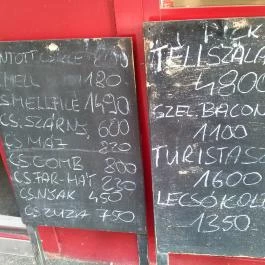 MELL 1780
MELLFILÉ 1490
CS.SZÁRNY 660
CS.MÁJ 820
CS.COMB 800
CS.FAR-HÁT 230
CS.NYAK 450
CS.ZUZA 750
TÉLISZALÁ
4800
SZEL.BACON
1100
TURISTASZ
1600
LECSÓKOLB
1350.